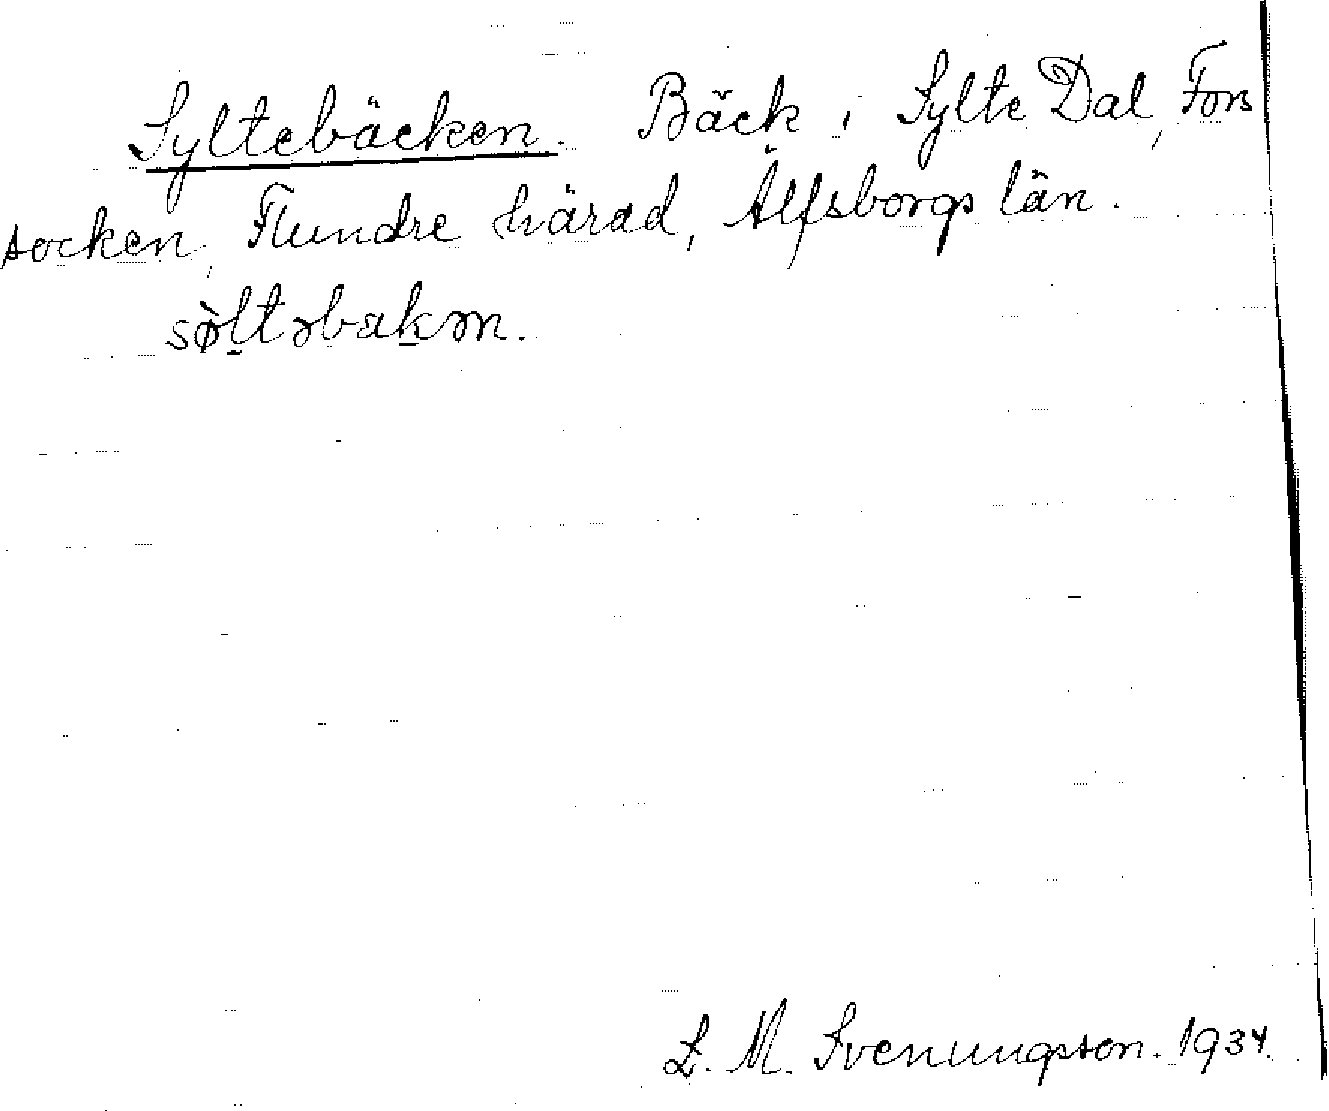 Syltebäcken. Bäck i Sylte Dal, Fors
socken, Flundre härad, Älfsborgs län.
sø̀ltəbakən.
L. M. Svenungson. 1934.